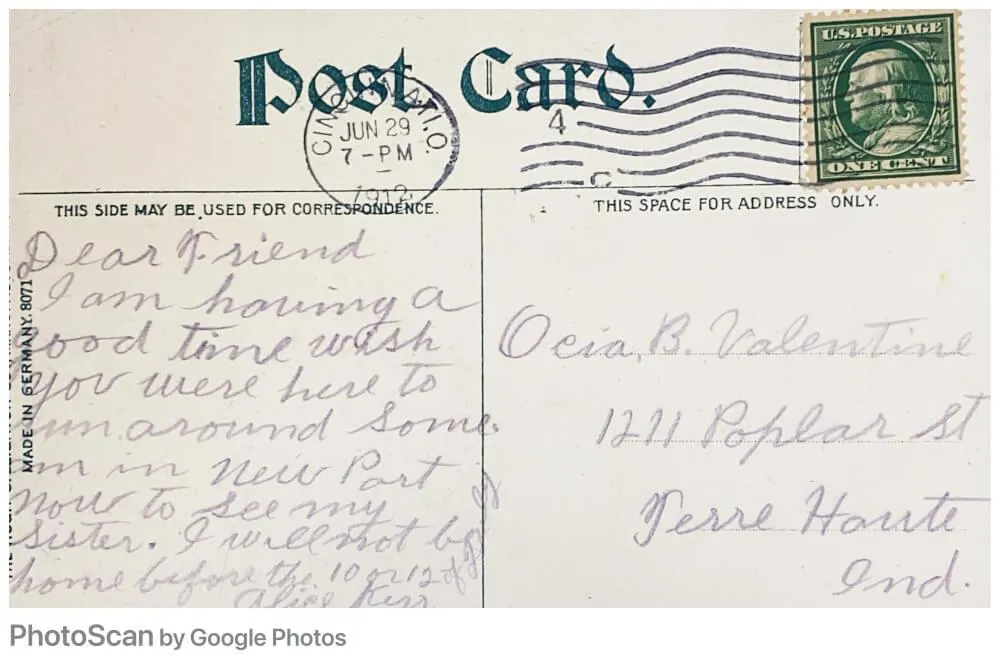 Post Card.
U.S. POSTAGE
ONE CENT
CINCINNATI, O.
JUN 29
7-PM
1912
4
THIS SIDE MAY BE USED FOR CORRESPONDENCE.
THIS SPACE FOR ADDRESS ONLY.
MADE IN GERMANY. 8071
Dear Friend
I am having a
good time wish
you were here to
run around some.
am in New Port
now to see my
sister. I will not be
home before the 10 or 12 of July
Alice Kerr
Ocia, B. Valentine
1211 Poplar St
Terre Haute
Ind.
PhotoScan by Google Photos